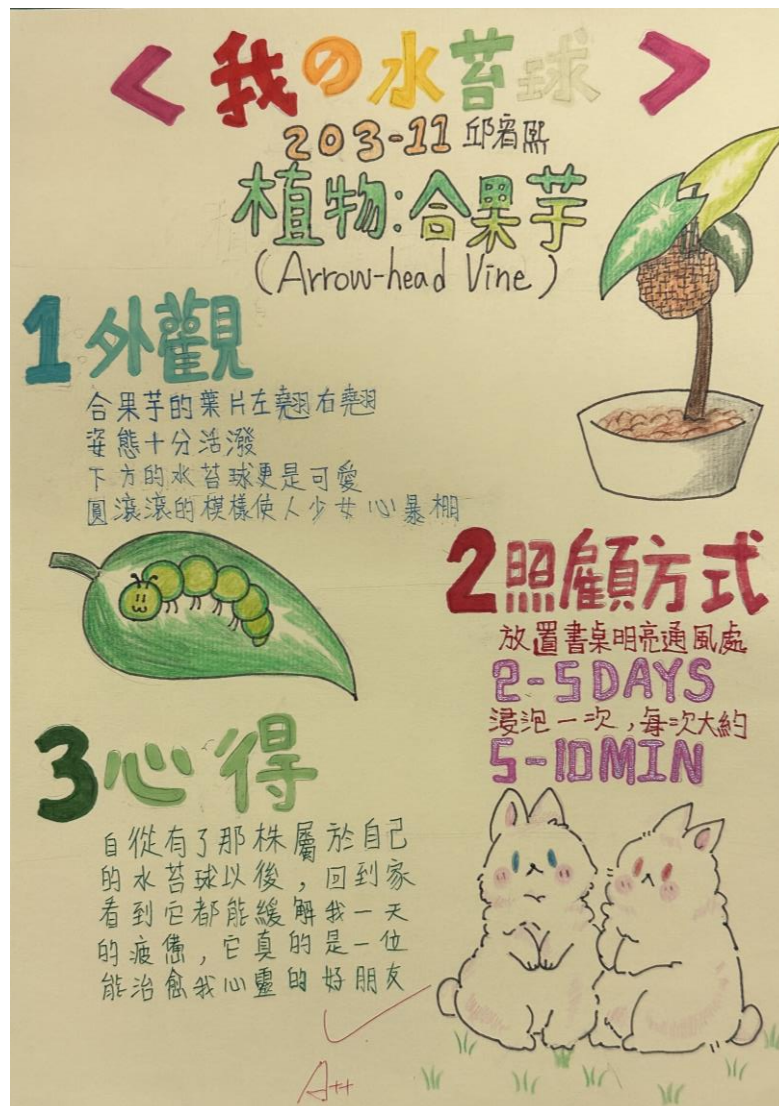 <我の水苔球>
203-11 邱宥熙
植物:合果芋
(Arrow-head Vine)
1 外觀
合果芋的葉片左翹右翹
姿態十分活潑
下方的水苔球更是可愛
圓滾滾的模樣使人少女心暴棚
2 照顧方式
放置書桌明亮通風處
2-5DAYS
浸泡一次,每次大約
5-10MIN
3 心得
自從有了那株屬於自己
的水苔球以後,回到家
看到它都能緩解我一天
的疲憊,它真的是一位
能治愈我心靈的好朋友
A++